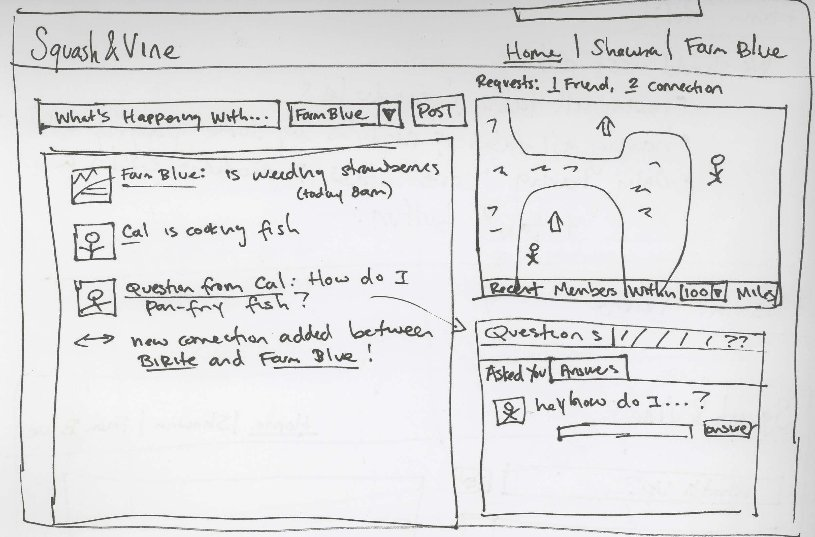 Squash&Vine
Home | Shawna | Farm Blue
Requests: 1 Friend, 2 connection
What's Happening With...
FarmBlue
POST
Farm Blue: is weeding strawberries
(today 8am)
Cal is cooking fish
Question from Cal: How do I
pan-fry fish?
new connection added between
BiRite and Farm Blue!
Recent Members Within 100 Miles
Questions ??
Asked You
Answers
hey how do I...?
answer